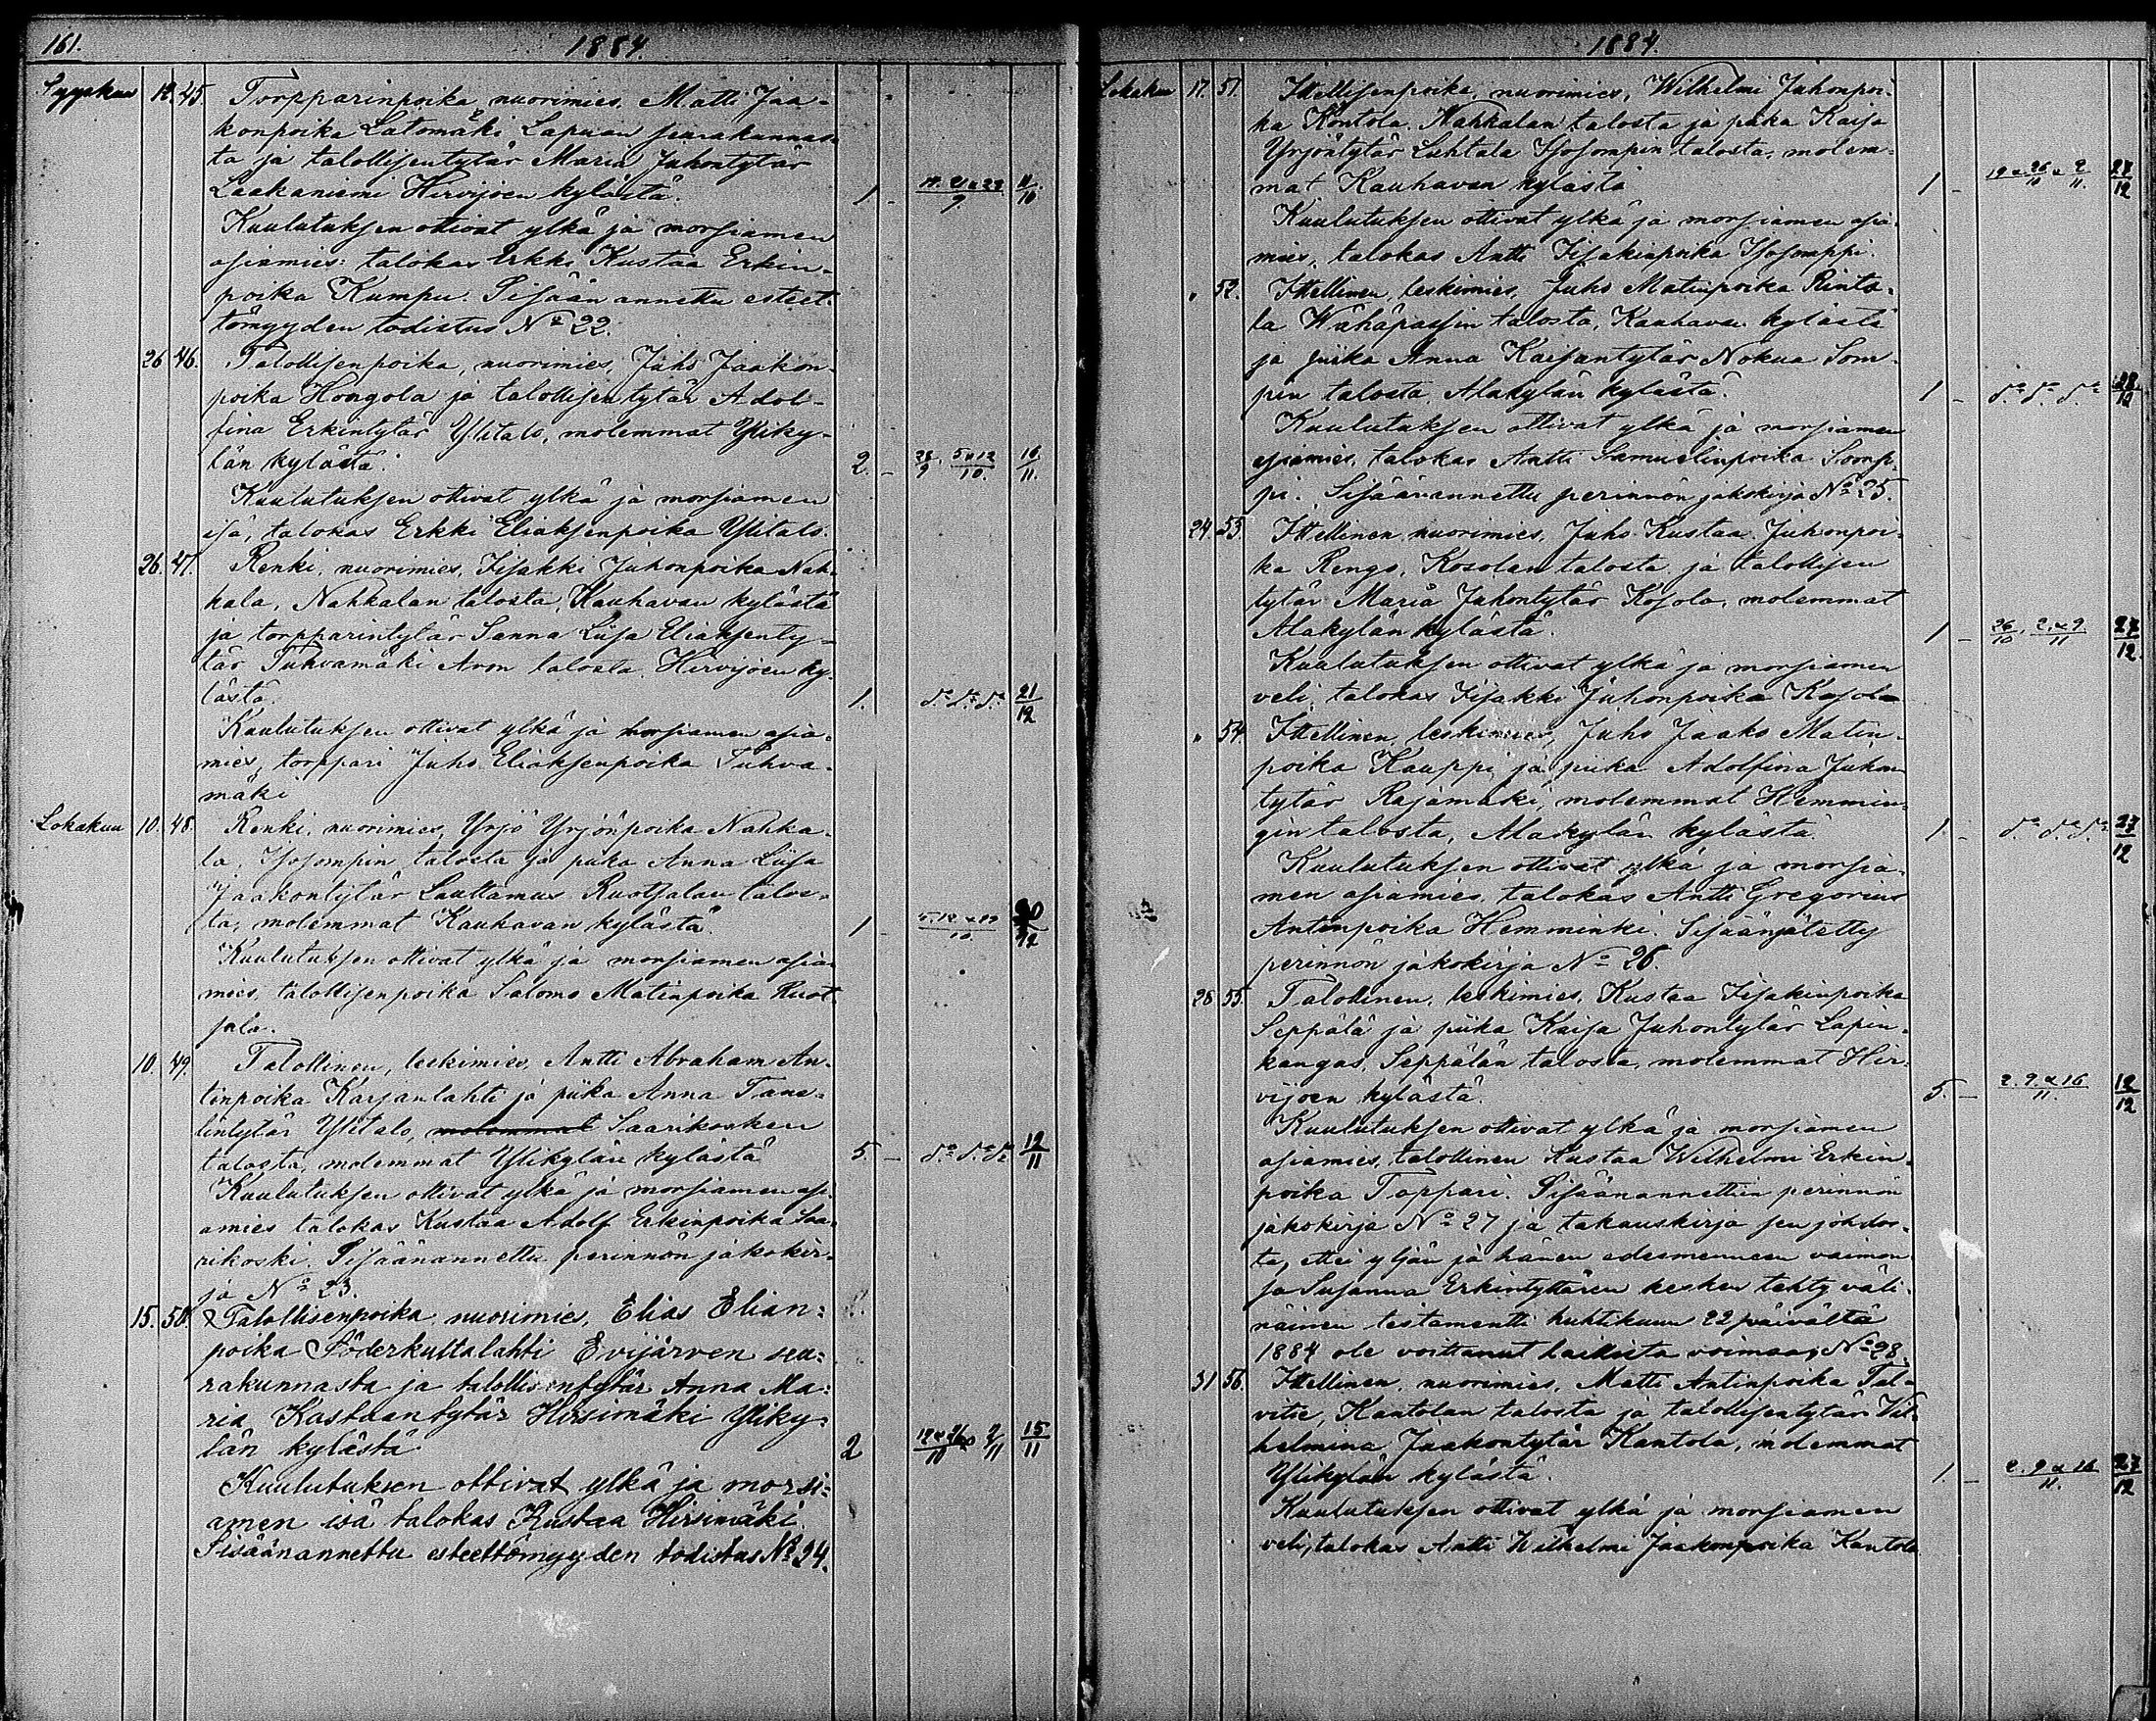 161. 1884.
Syyskuu 12. 45. Torpparinpoika, nuorimies, Matti Jaa-
konpoika Latomäki Lapuan seurakunnas-
ta ja talollisentytär Maria Juhontytär
Laakaniemi Hirvijoen kylästä. 1 - 14. 21 & 28/9. 11/10
Kuulutuksen ottivat ylkä ja morsiamen
asiamies: talokas Erkki Kustaa Erkin-
poika Kumpu. Sisään annettu esteet-
tömyyden todistus No 22.
26 46. Talollisenpoika, nuorimies, Juho Jaakon-
poika Hongola ja talollisentytär Adol-
fina Erkintytär Ylitalo, molemmat Yliky-
län kylästä. 2. - 28/9. 5 & 12/10. 10/11.
Kuulutuksen ottivat ylkä ja morsiamen
isä, talokas Erkki Eliaksenpoika Ylitalo.
26. 47. Renki, nuorimies, Iisakki Juhonpoika Nah-
kala, Nahkalan talosta, Kauhavan kylästä
ja torpparintytär Sanna Liisa Eliaksenty-
tär Tuhvamäki Aron talosta, Hirvijoen ky-
lästä. 1. do do do 21/12
Kuulutuksen ottivat ylkä ja morsiamen asia-
mies, torppari Juho Eliaksenpoika Tuhva-
mäki
Lokakuu 10. 48. Renki, nuorimies, Yrjö Yrjönpoika Nahka-
la, Isosompin talosta ja piika Anna Liisa
Jaakontytär Lauttamus Ruotsalan talos-
ta, molemmat Kauhavan kylästä. 1 - 5. 12 & 19/10. /12
Kuulutuksen ottivat ylkä ja morsiamen asia-
mies, talollisenpoika Salomo Matinpoika Ruot-
sala.
10. 49. Talollinen, leskimies, Antti Abraham An-
tinpoika Karjanlahti ja piika Anna Tane-
lintytär Ylitalo, molemmat Saarikosken
talosta, molemmat Ylikylän kylästä 5. - do do do 12/11
Kuulutuksen ottivat ylkä ja morsiamen asi-
amies talokas Kustaa Adolf Erkinpoika Saa-
rikoski. Sisäänannettu perinnön jakokir-
ja No 23.
15. 50. Talollisenpoika, nuorimies, Elias Elian-
poika Söderkultalahti Evijärven seu-
rakunnasta ja talollisentytär Anna Ma-
ria Kustaantytär Hirsimäki Yliky-
län kylästä 2 19 & 26/10 & 2/11 15/11
Kuulutuksen ottivat ylkä ja morsi-
amen isä talokas Kustaa Hirsimäki.
Sisäänannettu esteettömyyden todistus No 24.
1884.
Lokakuu 17. 51. Itsellisenpoika, nuorimies, Wilhelmi Juhonpoi-
ka Kontola, Nahkalan talosta ja piika Kaisa
Yrjöntytär Luhtala Isosompin talosta, molem-
mat Kauhavan kylästä 1 - 19 & 26/10 & 2/11. 27/12
Kuulutuksen ottivat ylkä ja morsiamen asia-
mies, talokas Antti Iisakinpoika Isosomppi.
" 52. Itsellinen, leskimies, Juho Matinpoika Rinta-
la Wähäpassin talosta, Kauhavan kylästä
ja piika Anna Kaisantytär Nokua Som-
pin talosta, Alakylän kylästä. 1 - do do do 28/12
Kuulutuksen ottivat ylkä ja morsiamen
asiamies, talokas Antti Samuelinpoika Somp-
pi. Sisäänannettu perinnön jakokirja No 25.
24. 53. Itsellinen, nuorimies, Juho Kustaa Juhonpoi-
ka Rengo, Kosolan talosta ja talollisen
tytär Maria Juhontytär Kosola, molemmat
Alakylän kylästä. 1 - 26/10. 2. & 9/11 27/12.
Kuulutuksen ottivat ylkä ja morsiamen
veli, talokas Iisakki Juhonpoika Kosola
" 54. Itsellinen leskimies, Juho Jaako Matin-
poika Kauppi ja piika Adolfina Juhon-
tytär Rajamäki, molemmat Hemmin-
gin talosta, Alakylän kylästä. 1 - do do do 27/12
Kuulutuksen ottivat ylkä ja morsia-
men asiamies, talokas Antti Gregorius
Antinpoika Hemminki. Sisäänjätetty
perinnön jakokirja No 26.
28 55. Talollinen, leskimies, Kustaa Iisakinpoika
Seppälä ja piika Kaisa Juhontytär Lapin-
kangas, Seppälän talosta, molemmat Hir-
vijoen kylästä. 5. - 2. 9. & 16/11. 12/12
Kuulutuksen ottivat ylkä ja morsiamen
asiamies, talollinen Kustaa Wilhelmi Erkin-
poika Toppari. Sisäänannettiin perinnön
jakokirja No 27 ja takauskirja sen johdos-
ta, ettei yljän ja hänen edesmenneen vaimon-
sa Susanna Erkintyttären kesken tehty väli-
näinen testamentti huhtikuun 22 päivältä
1884 ole voittanut laillista voimaa, No 28.
31 56. Itsellinen, nuorimies, Matti Antinpoika Tal-
vitie, Kantolan talosta ja talollisentytär Vil-
helmina Jaakontytär Kantola, molemmat
Ylikylän kylästä. 1. - 2. 9 & 16/11. 27/12
Kuulutuksen ottivat ylkä ja morsiamen
veli, talokas Antti Wilhelmi Jaakonpoika Kantola